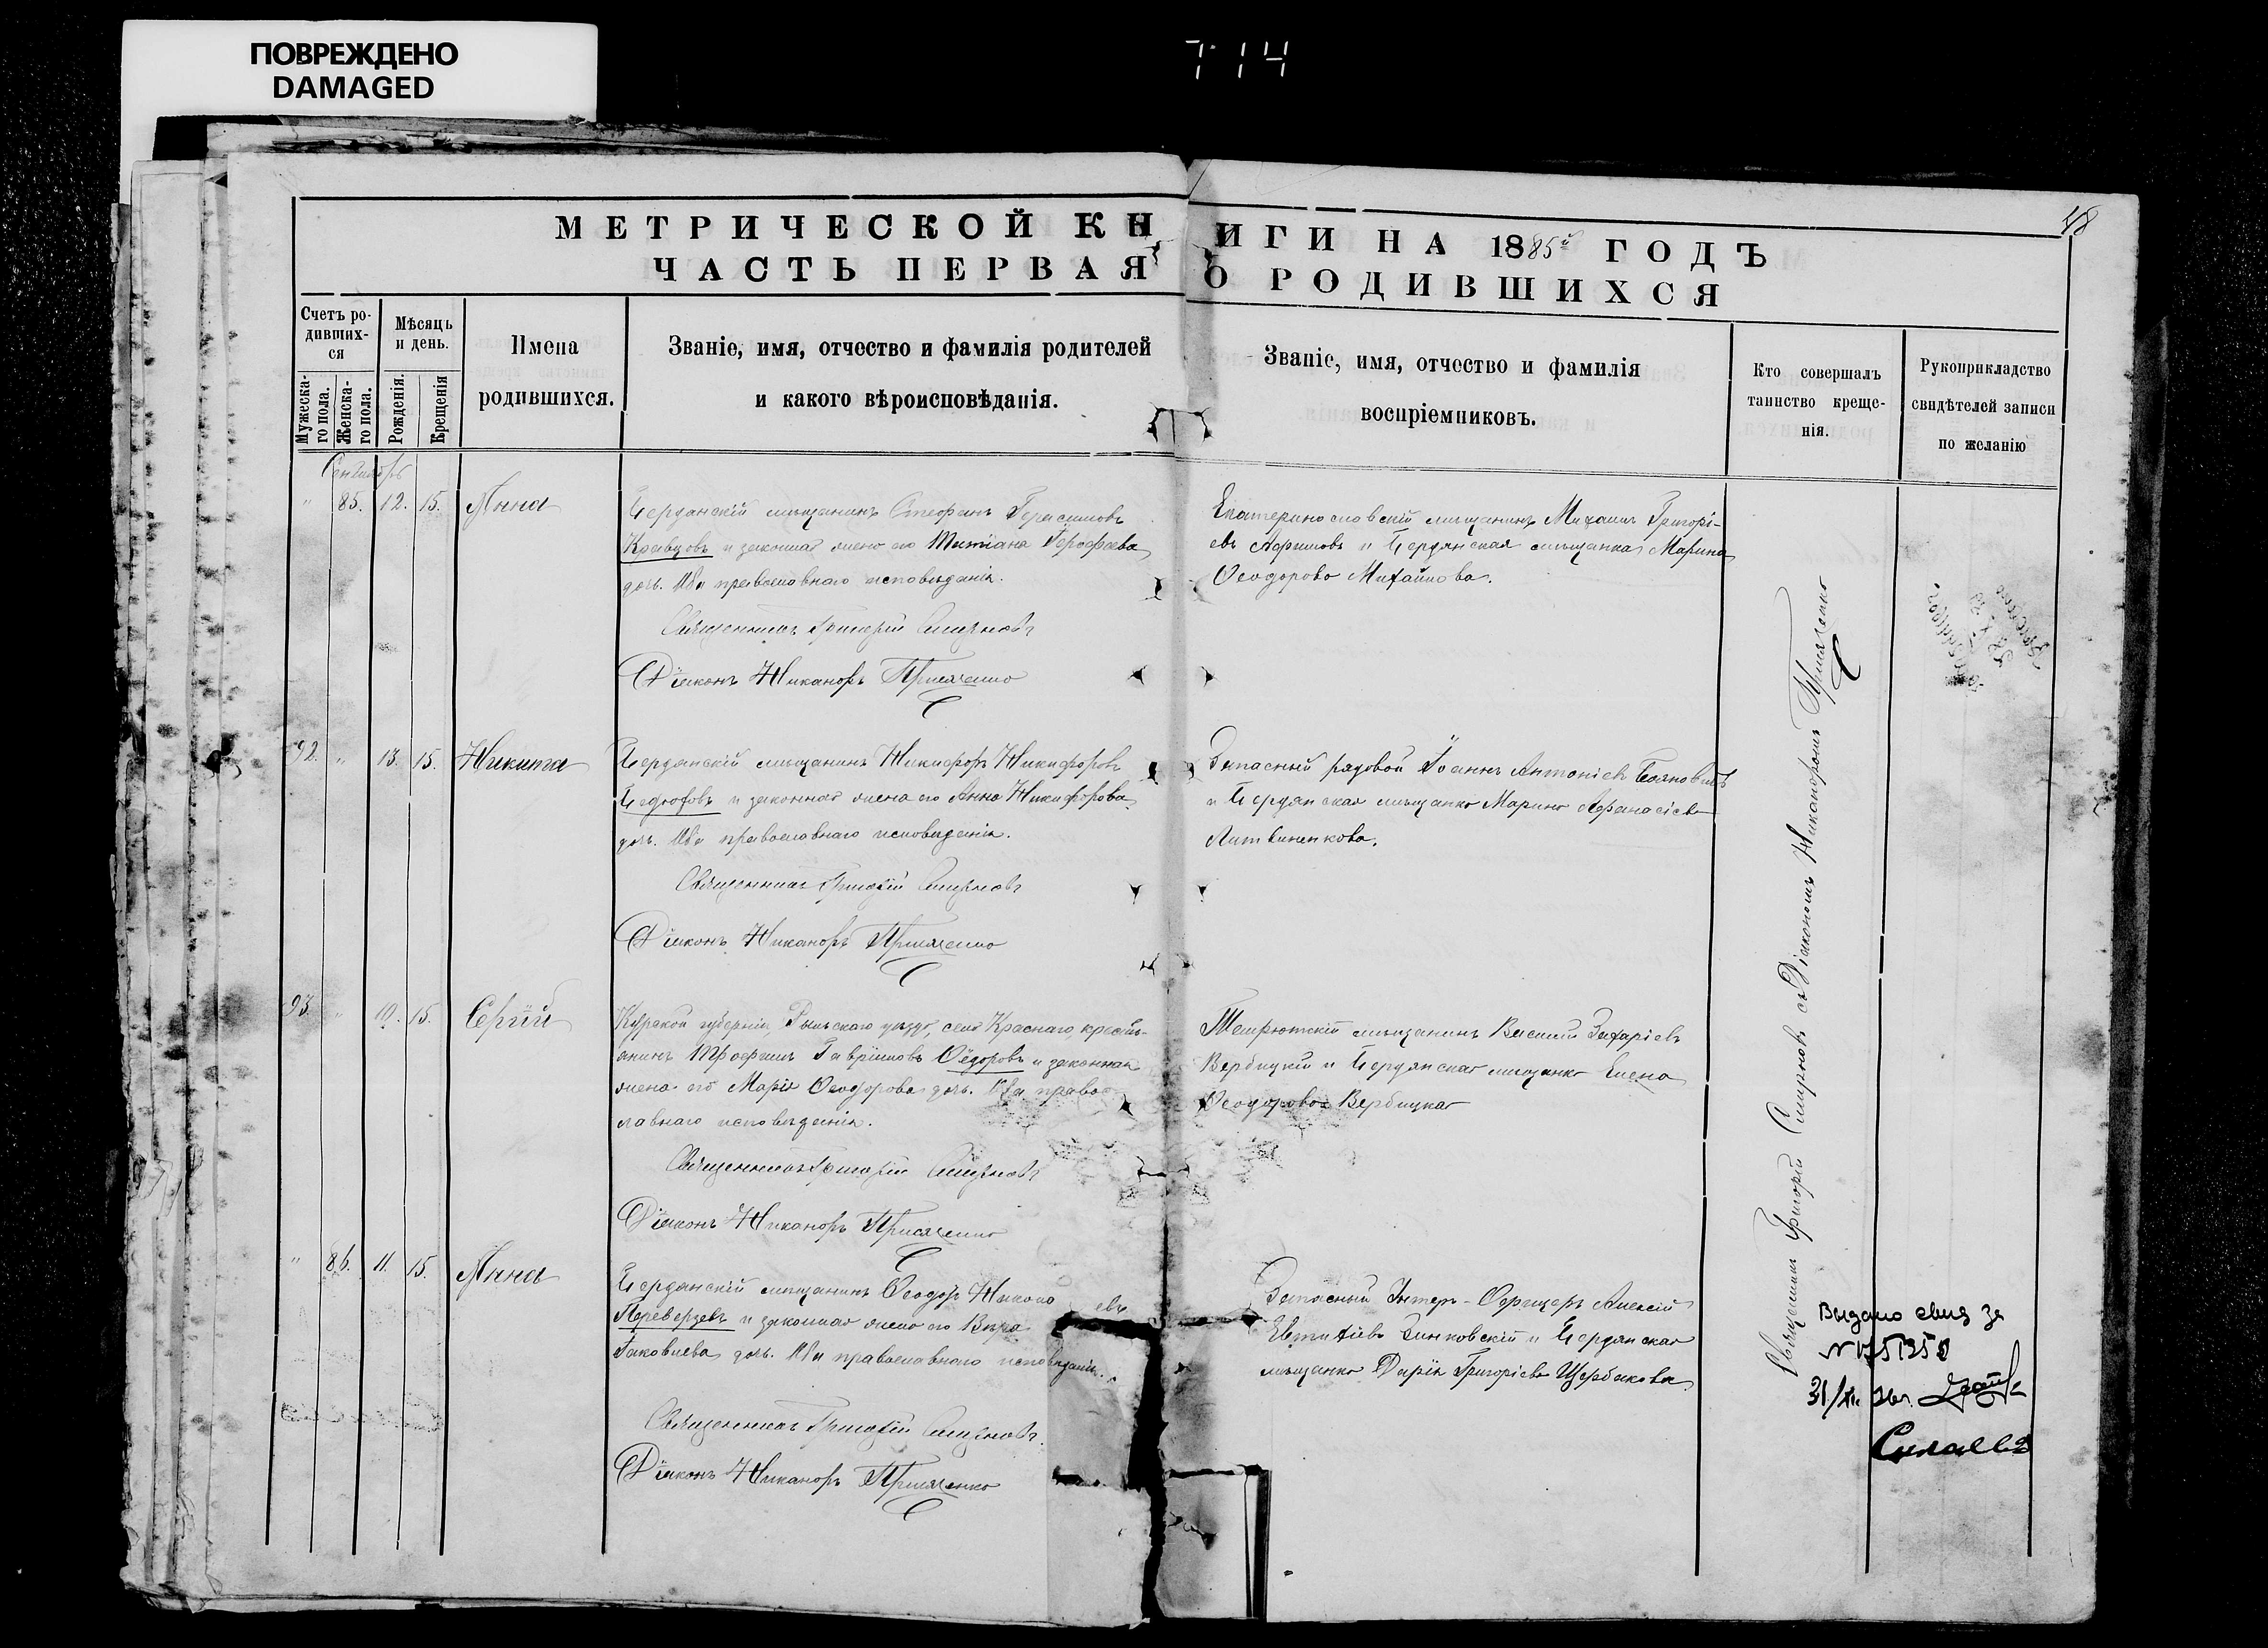 ПОВРЕЖДЕНО
DAMAGED
714
48
МЕТРИЧЕСКОЙ КНИГИ НА 1885й ГОДЪ
ЧАСТЬ ПЕРВАЯ О РОДИВШИХСЯ
Счетъ родившихся
Мужескаго пола.
Женскаго пола.
Мѣсяцъ и день.
Рожденія.
Крещенія
Имена
родившихся.
Званіе, имя, отчество и фамилія родителей
и какого вѣроисповѣданія.
Званіе, имя, отчество и фамилія
воспріемниковъ.
Кто совершалъ
таинство креще-
нія.
Рукоприкладство
свидѣтелей записи
по желанію
Сентябрь
" 85. 12. 15. Анна
Бердянскій мѣщанинъ Стефанъ Герасимовъ
Кравцовъ и законная жена его Татіана Ерофѣева
дочь. Оба православнаго исповѣданія.
Священникъ Григорій Смирновъ
Діаконъ Никаноръ Присяженко
Екатеринославскій мѣщанинъ Михаилъ Григорі-
евъ Афримовъ и Бердянская мѣщанка Марина
Ѳеодорова Михайлова.
92. " 13. 15. Никита
Бердянскій мѣщанинъ Никифоръ Никифоровъ
и законная жена его Анна Никифорова
дочь. Оба православнаго исповѣданія.
Священникъ Григорій Смирновъ
Діаконъ Никаноръ Присяженко
Запасный рядовой Іоаннъ Антоніевъ
и Бердянская мѣщанка Марина Афанасіева
Литвиненкова.
93. " 10. 15. Сергій
Курской губерніи Рыльскаго уѣзда, села Краснаго, кресть-
янинъ Трофимъ Гавріиловъ Ѳедоровъ и законная
жена его Марія Ѳеодорова дочь. Оба правос-
лавнаго исповѣданія.
Священникъ Григорій Смирновъ
Діаконъ Никаноръ Присяженко
Темрюкскій мѣщанинъ Василій Захаріевъ
Вербицкій и Бердянская мѣщанка Елена
Ѳеодорова Вербицкая
" 86. 11. 15. Анна
Бердянскій мѣщанинъ Ѳеодоръ Никола евъ
Переверзевъ и законная жена его Вѣра
Іаковлева дочь. Оба православнаго исповѣданія.
Священникъ Григорій Смирновъ.
Діаконъ Никаноръ Присяженко
Запасный Унтеръ-Офицеръ Алексій
Евтихіевъ Зинковскій и Бердянская
мѣщанка Дарія Григоріева Щербакова.
Священникъ Григорій Смирновъ съ Діакономъ Никаноромъ Присяженко
Выдано свид за